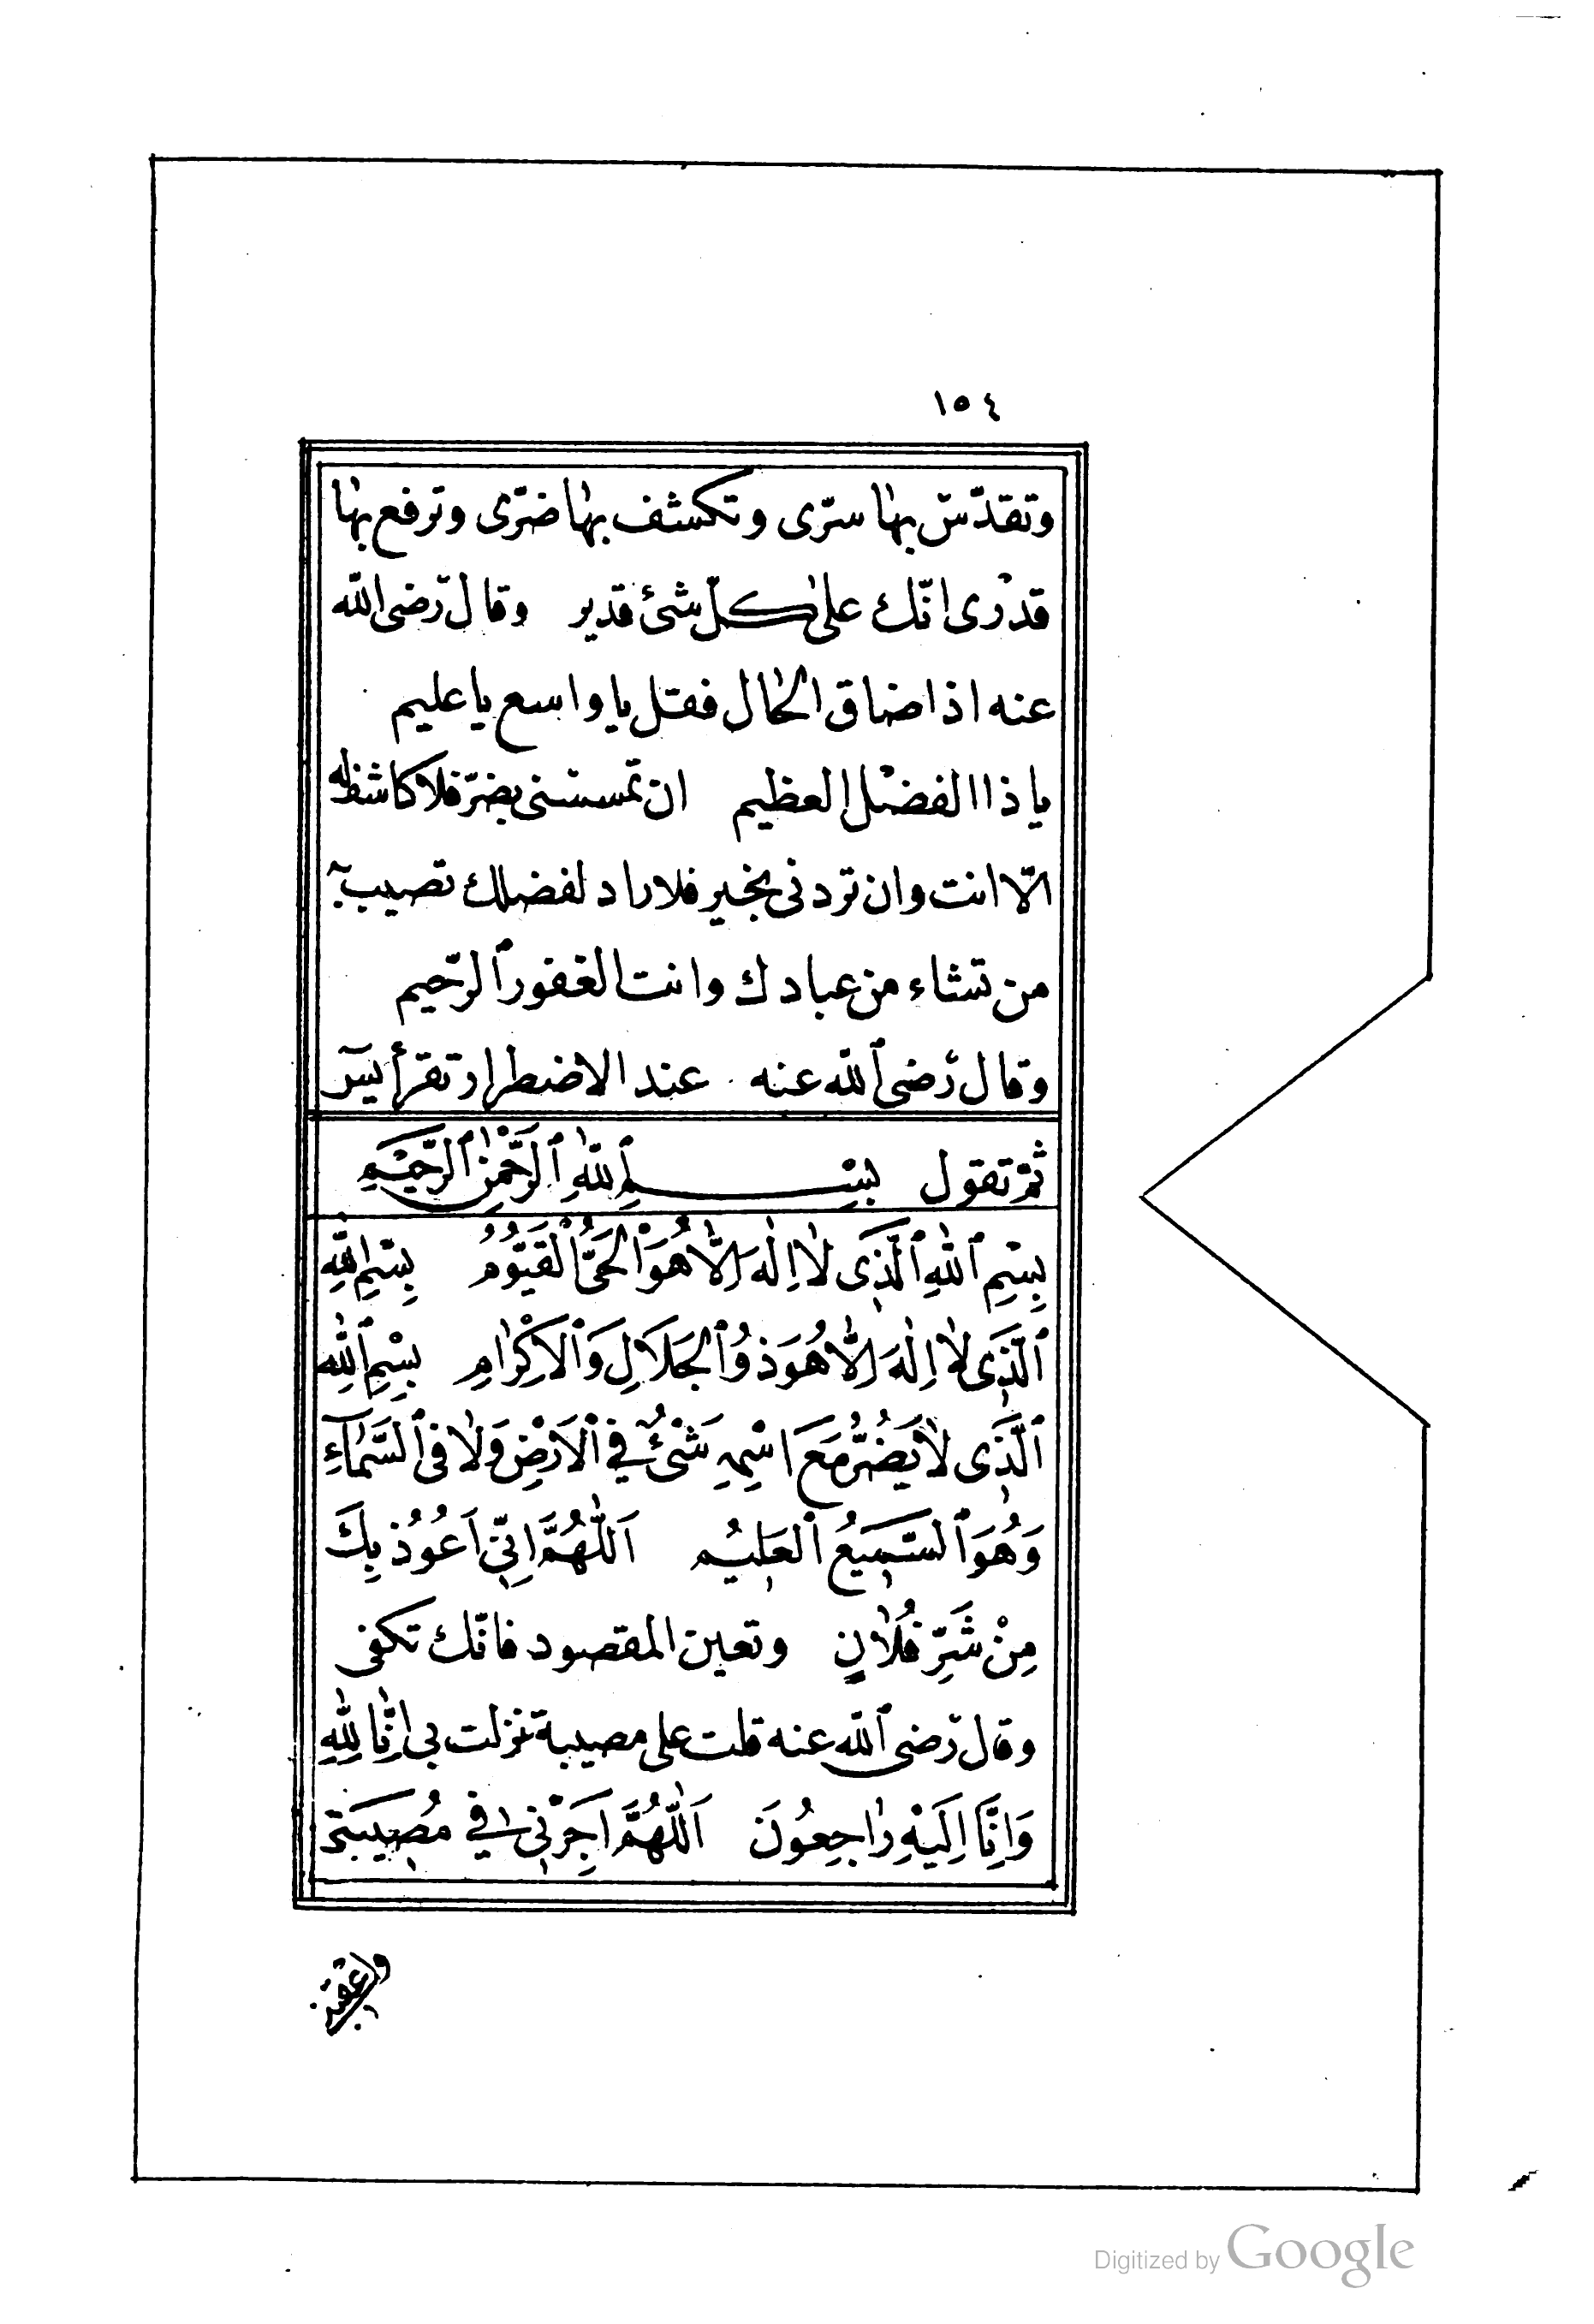 ١٥٤
وتقدّس بها سرّى وتكشف بها ضرّى وترفع بها
قدرى انّك على كلّ شئ قدير وقال رضى الله
عنه اذا ضاق الحال فقل يا واسع يا عليم
يا ذا الفضل العظيم ان تمسسنى بضرّ فلا كاشف له
الّا انت وان تردنى بخير فلا راد لفضلك تصيب به
من تشاء من عبادك وانت الغفور الرّحيم
وقال رضى الله عنه عند الاضطرار تقرأ يس
ثمّ تقول بِسْمِ اللهِ الرَّحْمٰنِ الرَّحِيْمِ
بِسْمِ اللهِ الَّذِى لَا اِلٰهَ اِلَّا هُوَ الْحَىُّ الْقَيُّوْمُ بِسْمِ اللهِ
الَّذِى لَا اِلٰهَ اِلَّا هُوَ ذُو الْجَلَالِ وَالْاِكْرَامِ بِسْمِ اللهِ
الَّذِى لَا يَضُرُّ مَعَ اسْمِهِ شَىْءٌ فِي الْاَرْضِ وَلَا فِى السَّمَاءِ
وَهُوَ السَّمِيعُ الْعَلِيْمُ اَللّٰهُمَّ اِنِّى اَعُوْذُ بِكَ
مِنْ شَرِّ فُلَانٍ وتعين المقصود فانّك تكفى
وقال رضى الله عنه قلت على مصيبة نزلت بى اِنَّا لِلّٰهِ
وَاِنَّا اِلَيْهِ رَاجِعُونَ اَللّٰهُمَّ اَجِرْنِى فِي مُصِيبَتِى
واعقبنى
Digitized by Google